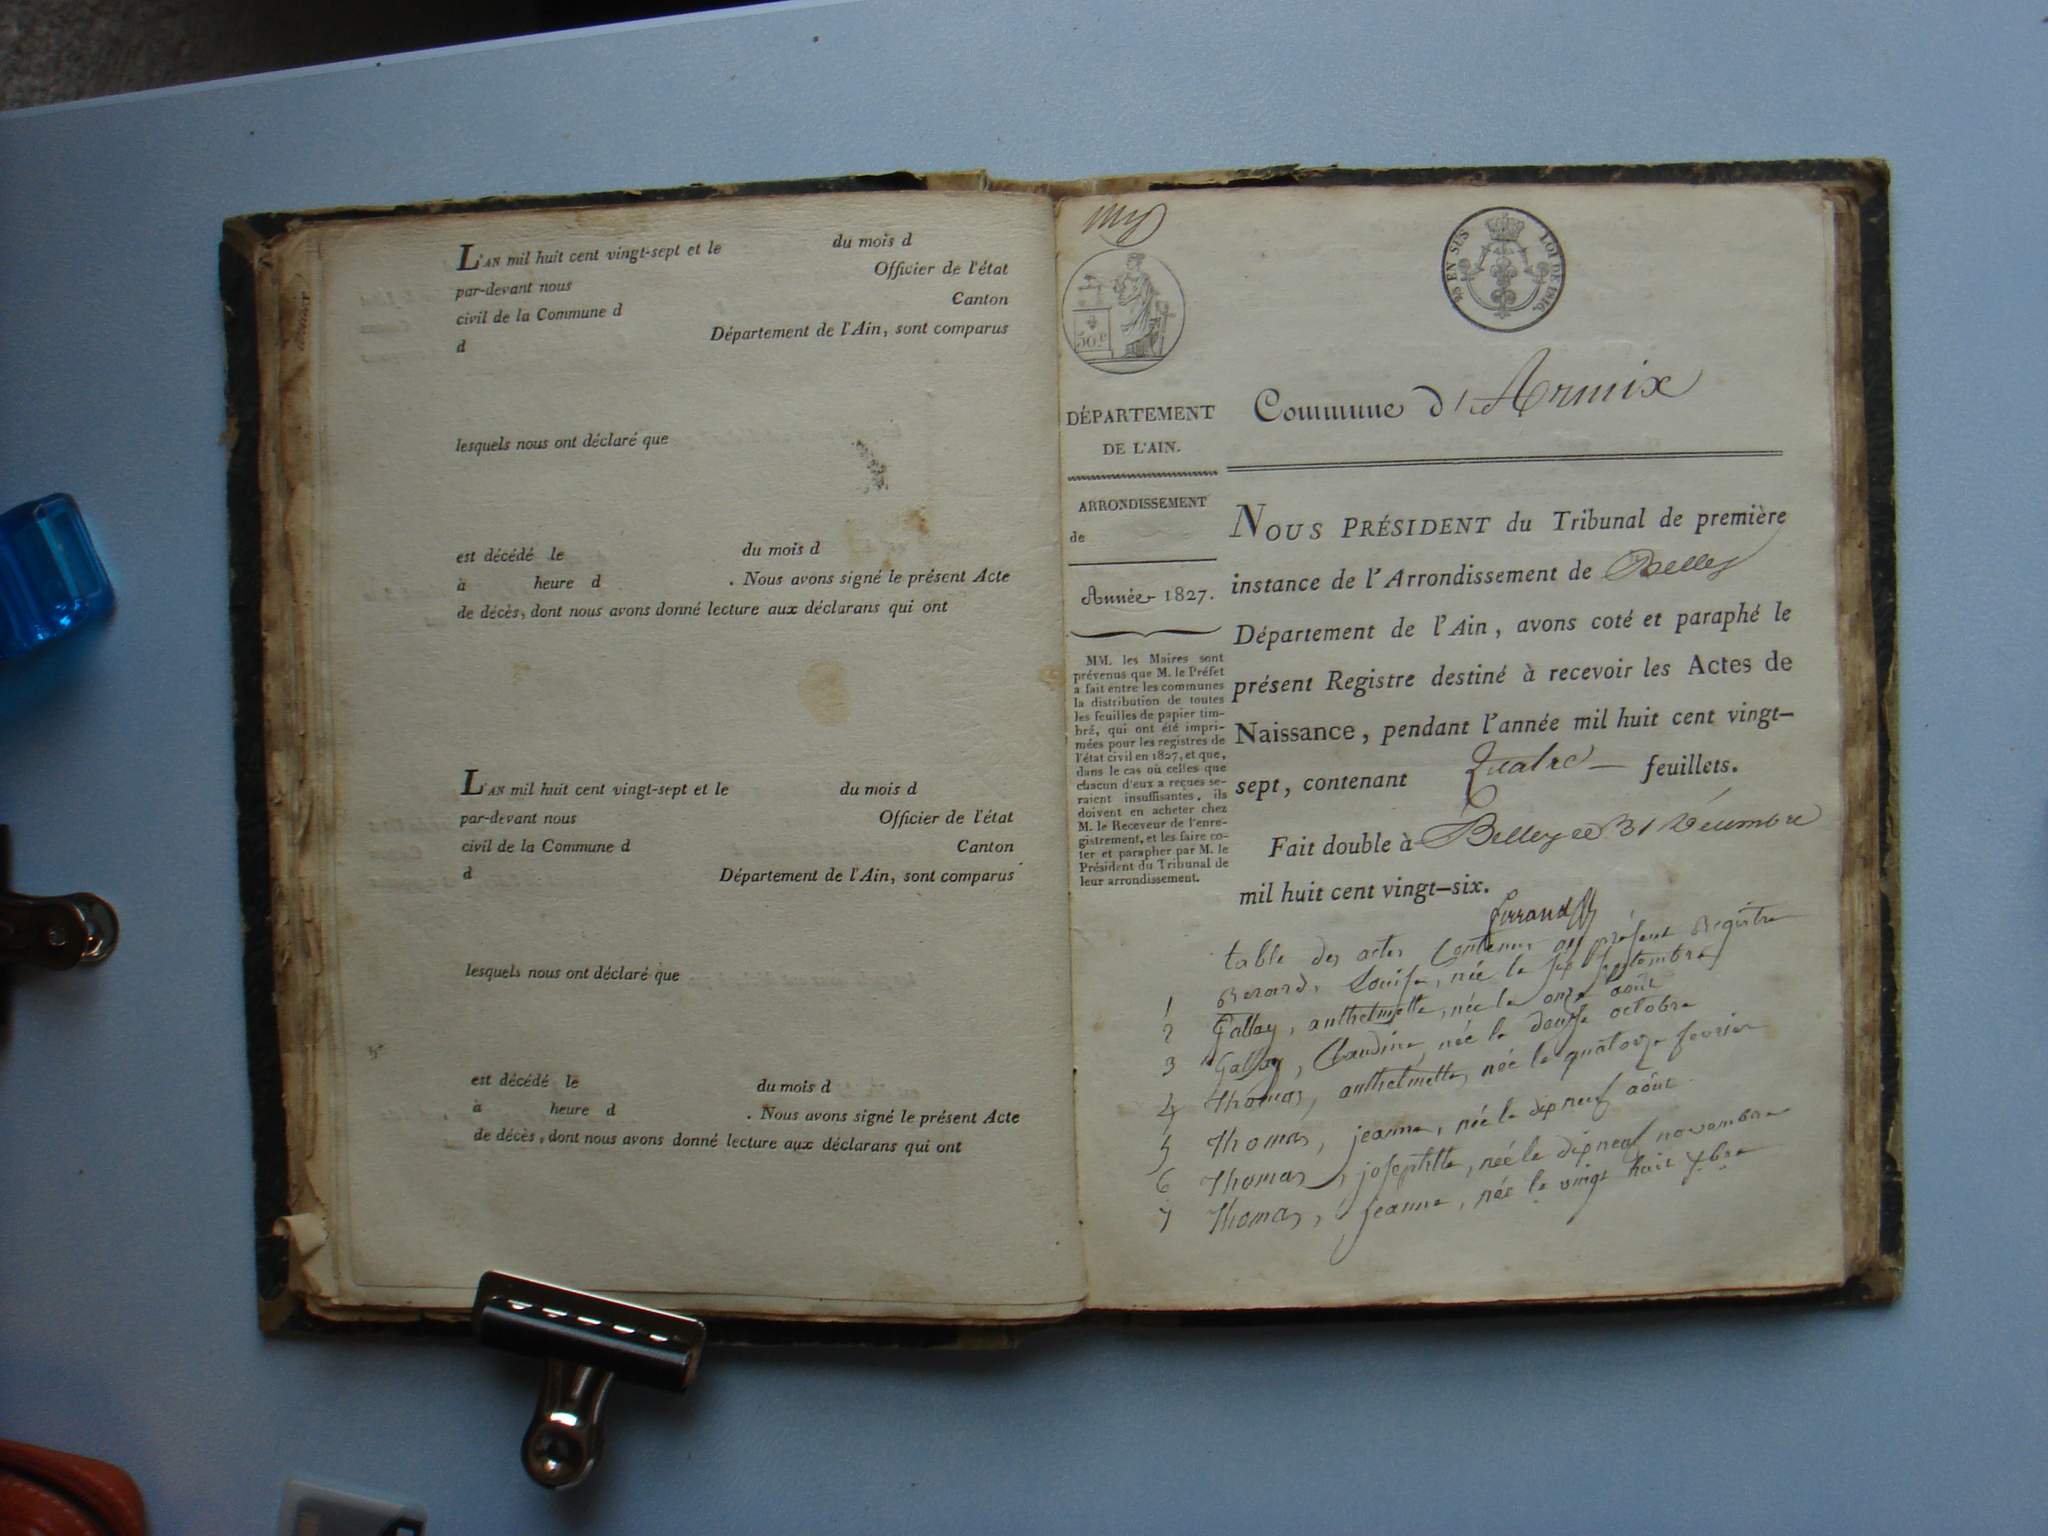 L'AN mil huit cent vingt-sept et le du mois d
par-devant nous Officier de l'état
civil de la Commune d Canton
d Département de l'Ain, sont comparus
lesquels nous ont déclaré que
est décédé le du mois d
à heure d . Nous avons signé le présent Acte
de décès, dont nous avons donné lecture aux déclarans qui ont
L'AN mil huit cent vingt-sept et le du mois d
par-devant nous Officier de l'état
civil de la Commune d Canton
d Département de l'Ain, sont comparus
lesquels nous ont déclaré que
est décédé le du mois d
à heure d . Nous avons signé le présent Acte
de décès, dont nous avons donné lecture aux déclarans qui ont
50 c
EN SUS LOI DE 1816
DÉPARTEMENT
DE L'AIN.
ARRONDISSEMENT
de
Année 1827.
MM. les Maires sont
prévenus que M. le Préfet
a fait entre les communes
la distribution de toutes
les feuilles de papier tim-
bré, qui ont été impri-
mées pour les registres de
l'état civil en 1827, et que,
dans le cas où celles que
chacun d'eux a reçues se-
raient insuffisantes, ils
doivent en acheter chez
M. le Receveur de l'enre-
gistrement, et les faire co-
ter et parapher par M. le
Président du Tribunal de
leur arrondissement.
Commune d'Armix
NOUS PRÉSIDENT du Tribunal de première
instance de l'Arrondissement de Belley
Département de l'Ain, avons coté et paraphé le
présent Registre destiné à recevoir les Actes de
Naissance, pendant l'année mil huit cent vingt-
sept, contenant Quatre feuillets.
Fait double à Belley ce 31 Décembre
mil huit cent vingt-six.
table des actes Contenus au présent Registre
1 Berard, Louise, née le six septembre
2 Gallay, anthelmette, née le onze août
3 Gallay, Claudine, née le douze octobre
4 Thomas, anthelmette, née le quatorze fevrier
5 Thomas, jeanne, née le dix neuf août
6 Thomas, josephte, née le dix neuf novembre
7 Thomas, jeanne, née le vingt huit xbre